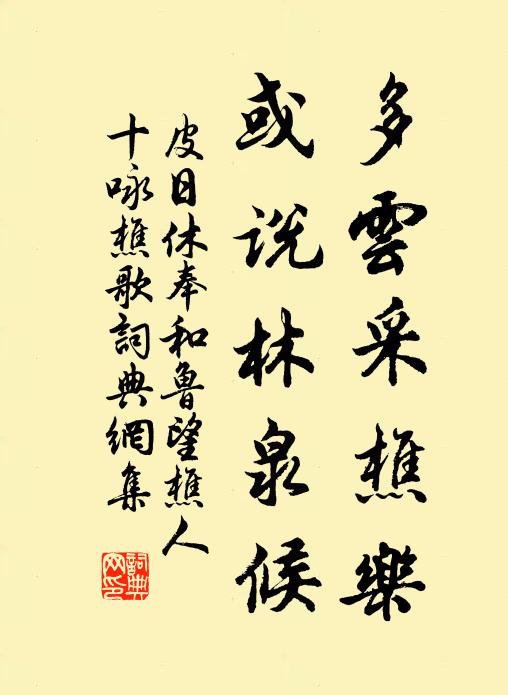 多雲采樵樂
或説林泉候
皮日休奉和魯望樵人
十咏樵歌詞典網集
詞典
网印